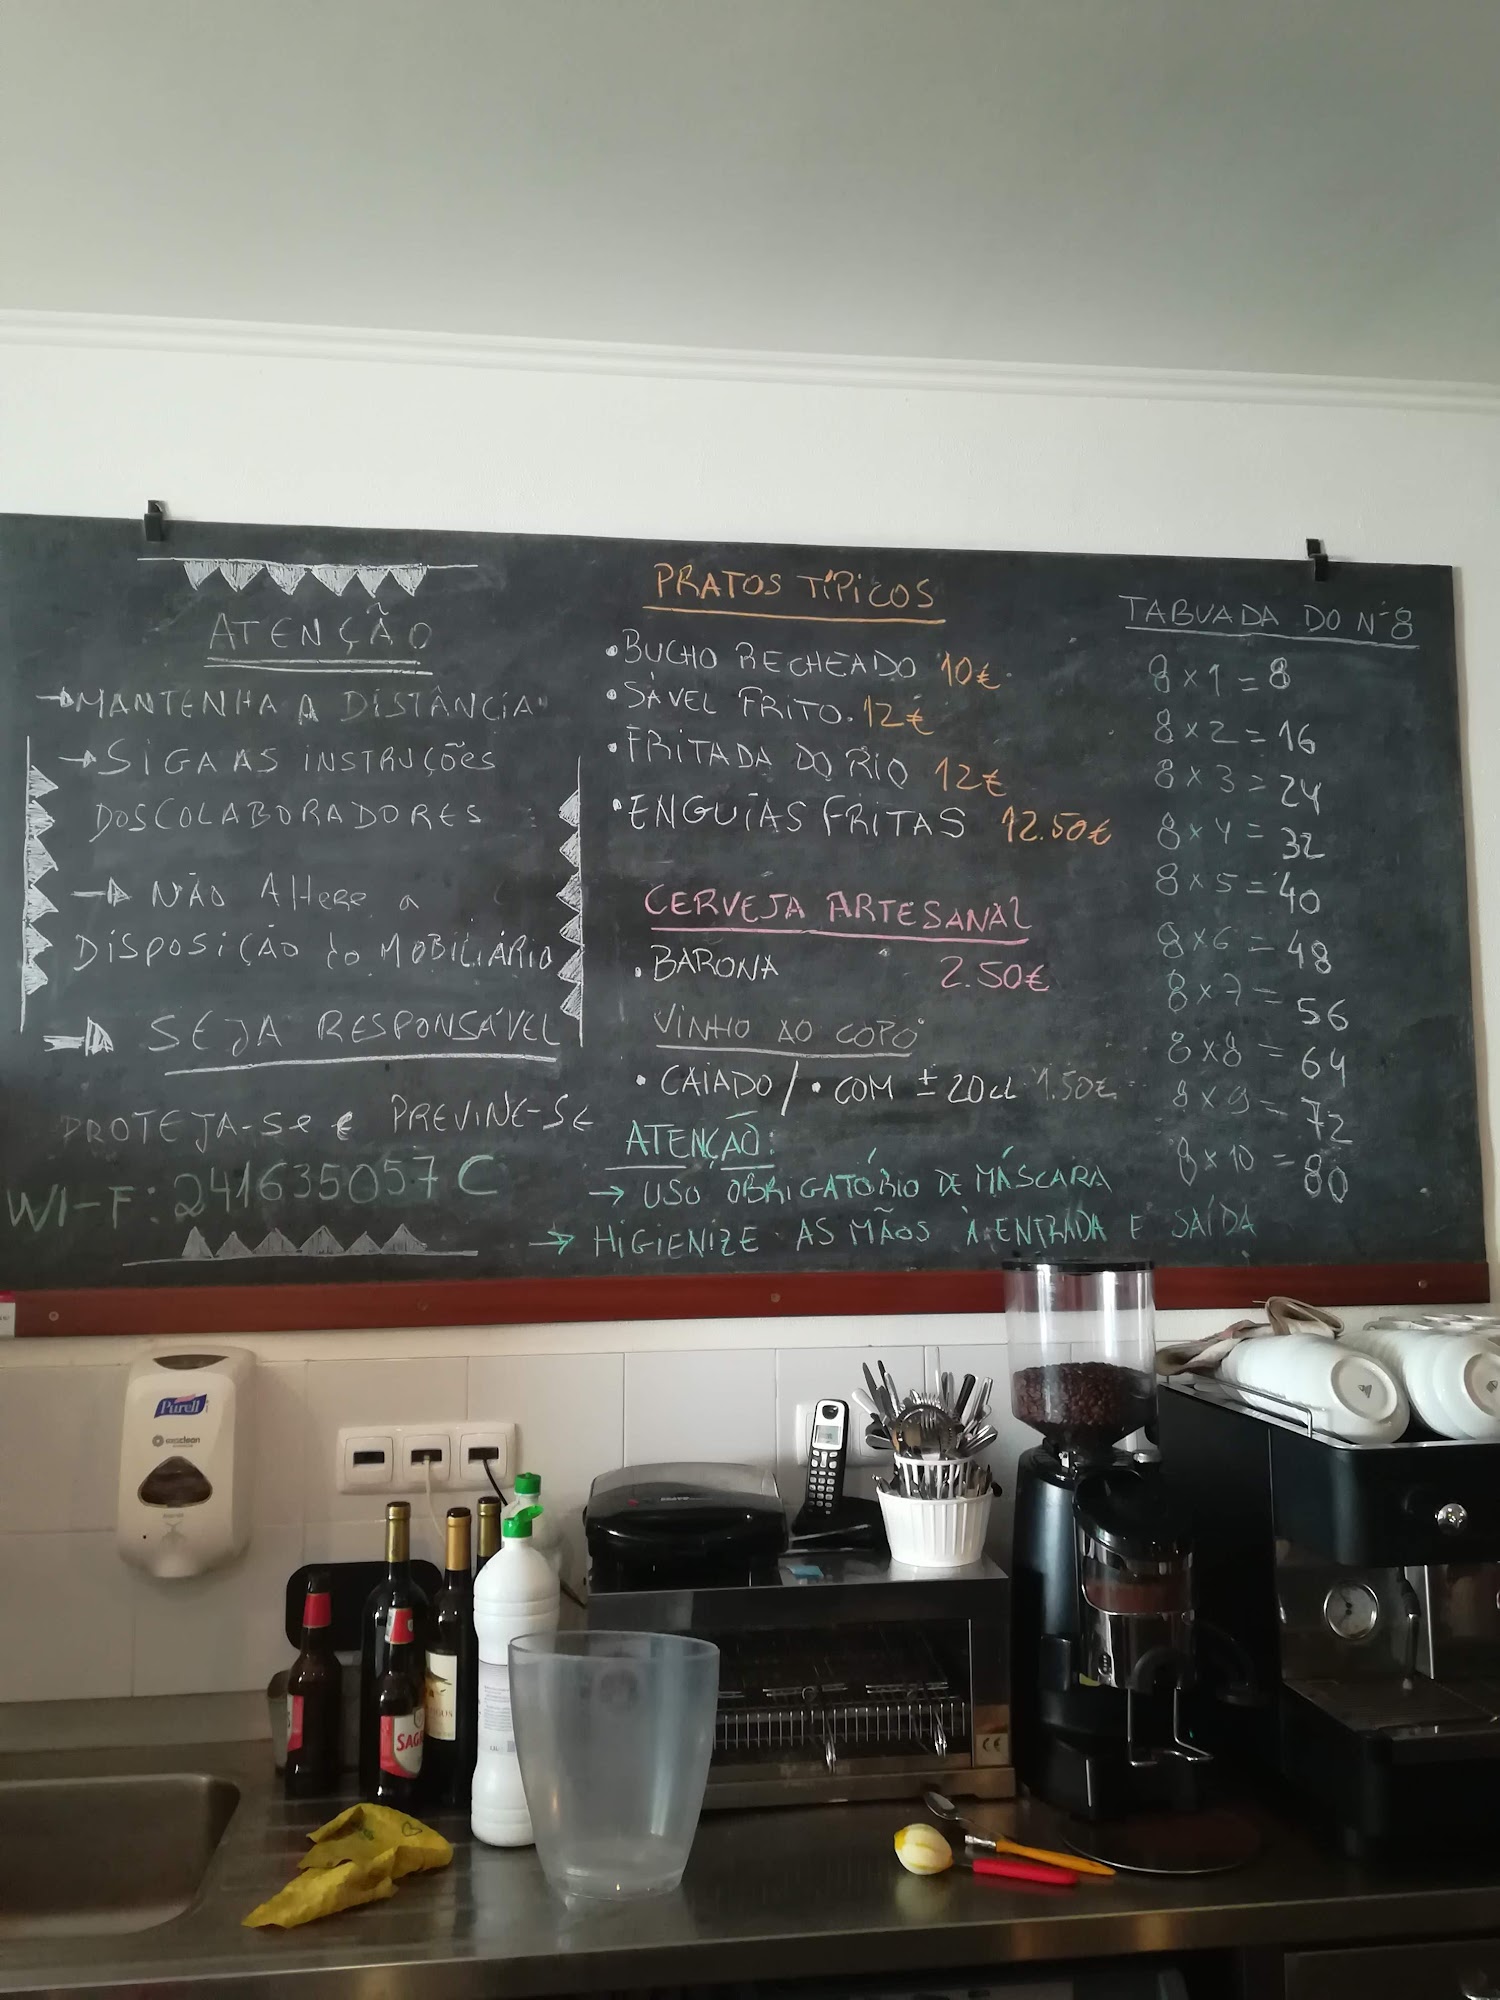 ATENÇÃO
→ MANTENHA A DISTÂNCIA
→ SIGA AS INSTRUÇÕES
DOS COLABORADORES
→ NÃO Altere a
DISPOSIÇÃO do MOBILIÁRIO
→ SEJA RESPONSÁVEL
PROTEJA-Se e PREVINE-SE
WI-F: 241635057C
PRATOS TÍPICOS
• BUCHO RECHEADO 10€
• SÁVEL FRITO. 12€
• FRITADA DO RIO 12€
• ENGUIAS FRITAS 12.50€
CERVEJA ARTESANAL
• BARONA 2.50€
VINHO AO COPO
• CAIADO / • COM ± 20cl 1.50€
ATENÇÃO:
→ USO OBRIGATÓRIO DE MÁSCARA
→ HIGIENIZE AS MÃOS À ENTRADA E SAÍDA
TABUADA DO Nº 8
8 x 1 = 8
8 x 2 = 16
8 x 3 = 24
8 x 4 = 32
8 x 5 = 40
8 x 6 = 48
8 x 7 = 56
8 x 8 = 64
8 x 9 = 72
8 x 10 = 80
Purell
SAG
CE